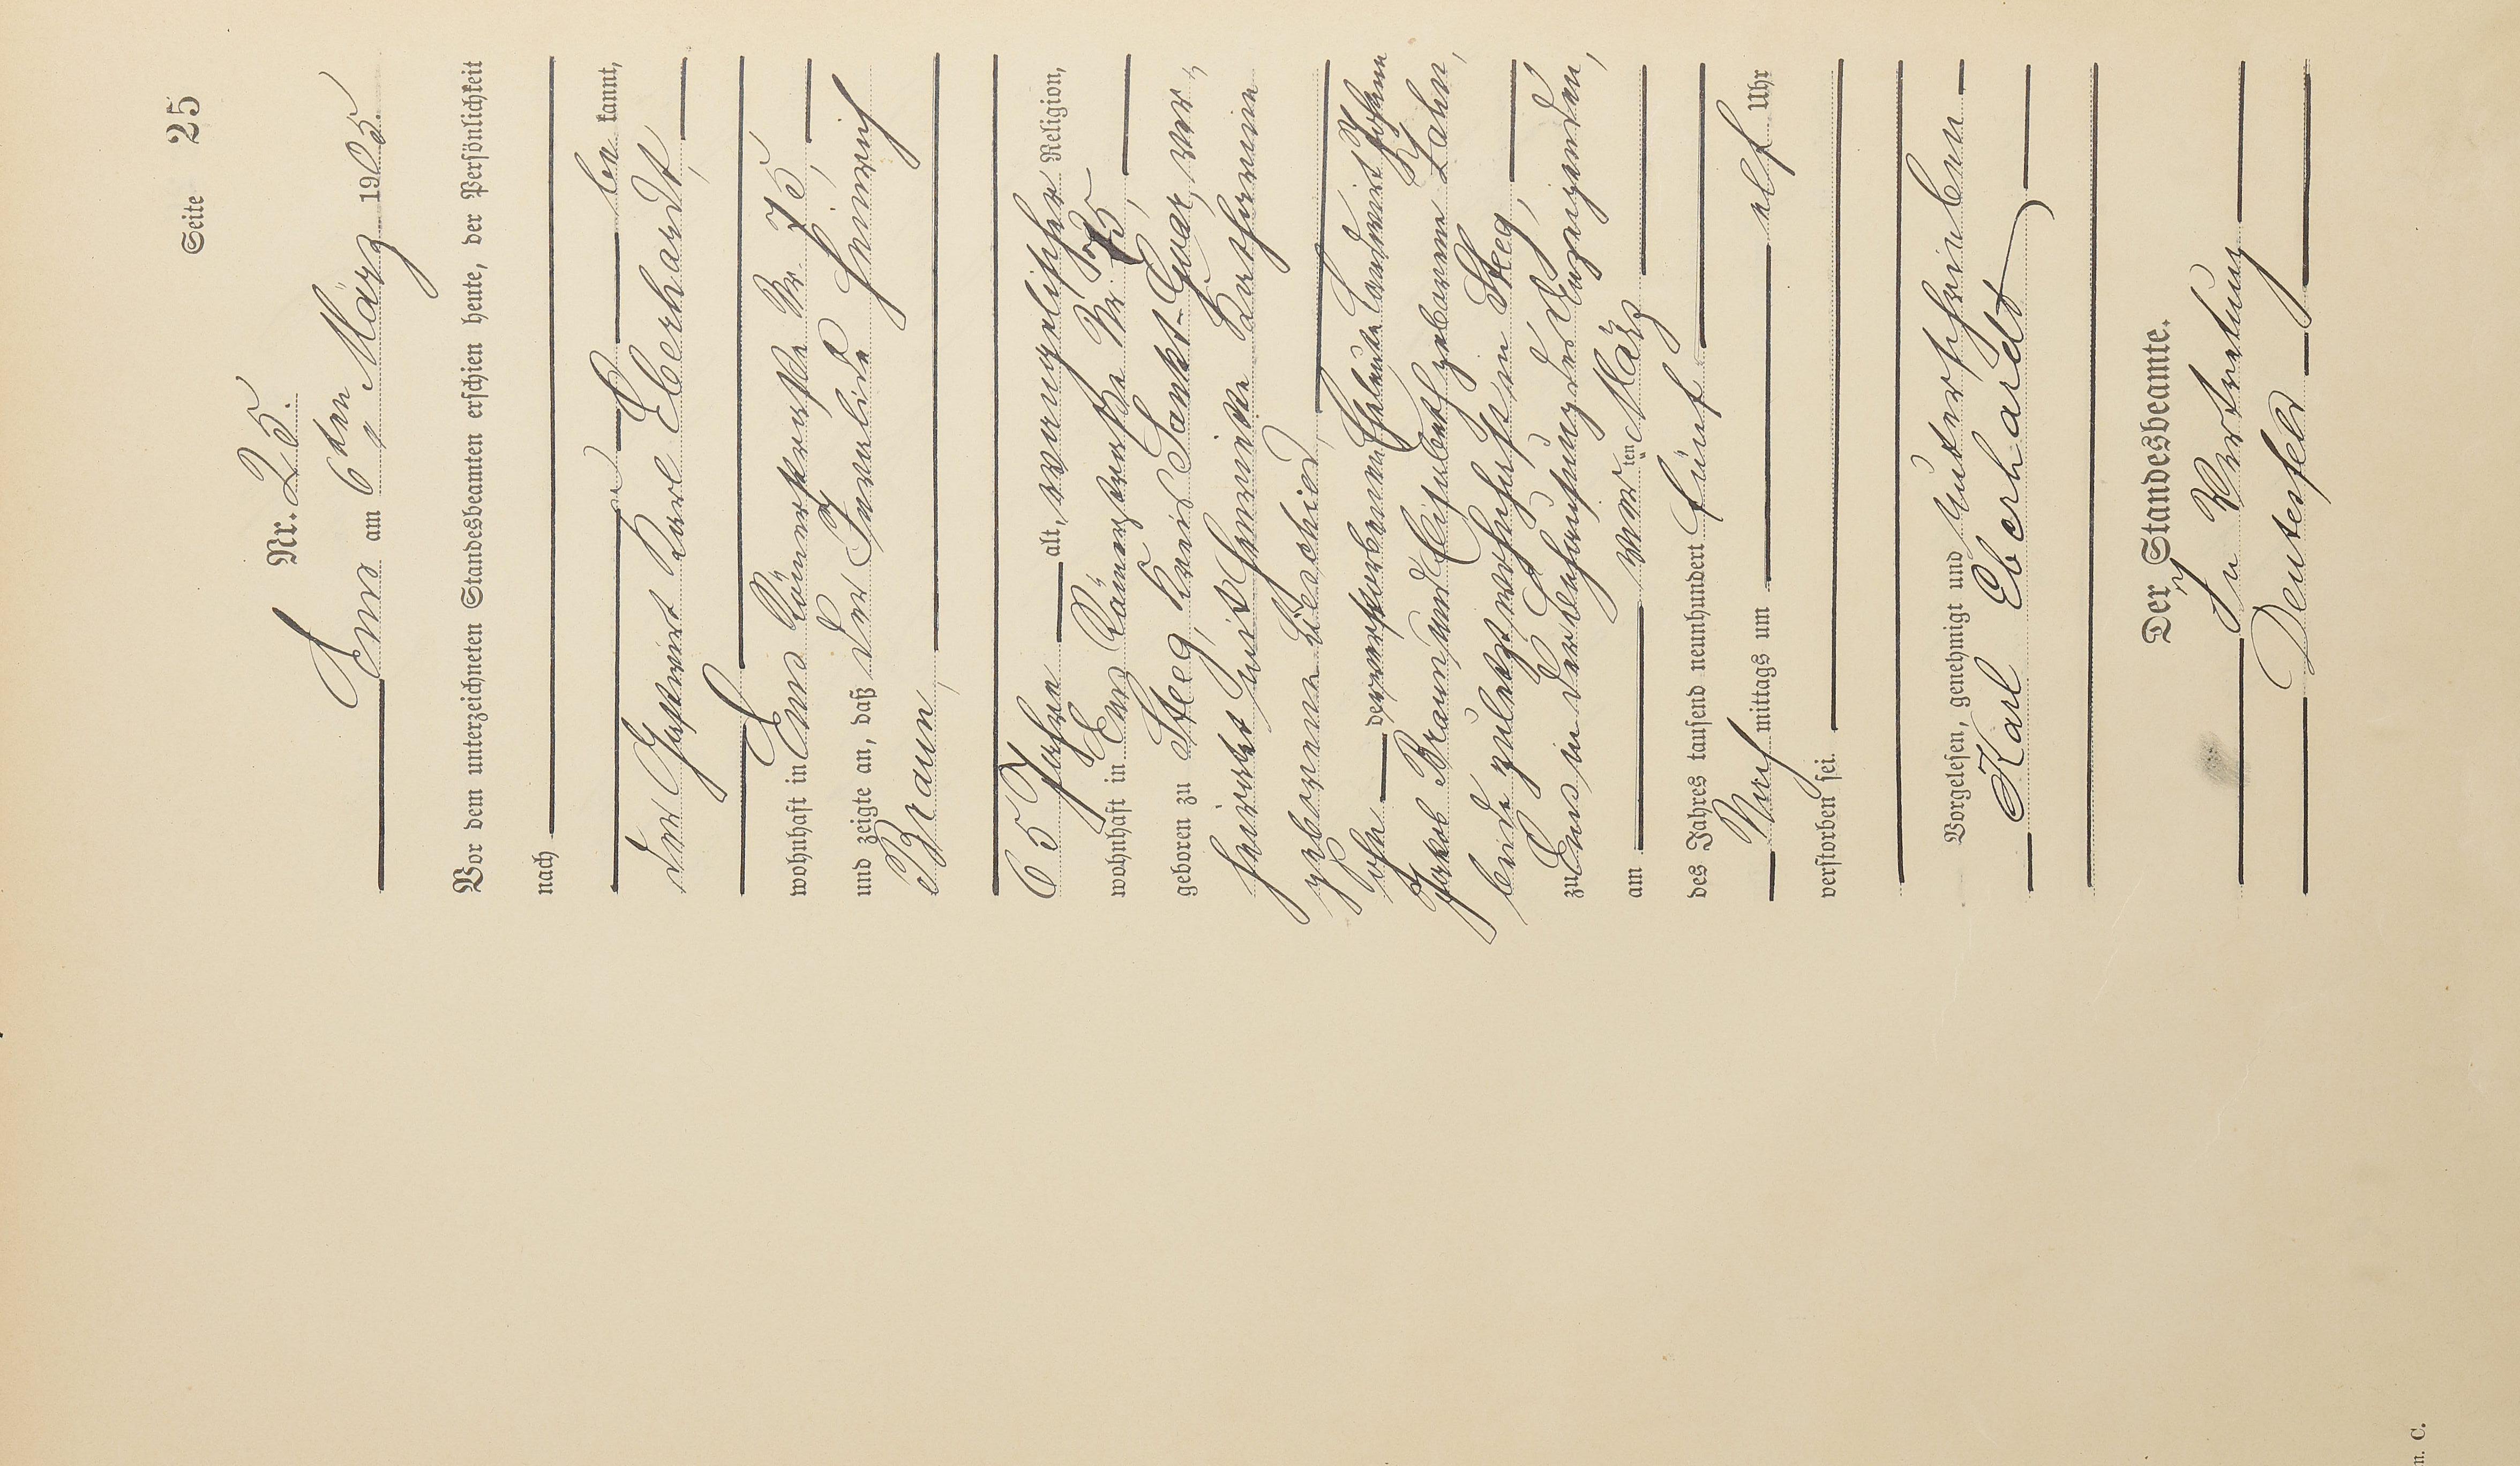 Seite 25
Nr. 25.
Ems am 6ten März 1905.
Vor dem unterzeichneten Standesbeamten erschien heute, der Persönlichkeit
nach
be kannt,
der Gastwirt Karl Eberhardt,
wohnhaft in Ems Römerstraße Nr. 75,
und zeigte an, daß der Invalide Heinrich
Braun,
65 Jahre alt, evangelischer Religion,
wohnhaft in Ems Römerstraße Nr. 75,
geboren zu Steeg, Kreis Sankt-Goar, ver-
heiratet mit Henriette Katharine
geborenen Lieschied,
Sohn der verstorbenen Eheleute Landwirt Johann
Jakob Braun und Elisabeth geborene Hahn,
beide zuletzt wohnhaft in Steeg,
zu Ems in der Behausung des Anzeigenden,
am vierten März
des Jahres tausend neunhundert fünf
Nach mittags um elf Uhr
verstorben sei.
Vorgelesen, genehmigt und unterschrieben
Karl Eberhardt
Der Standesbeamte.
In Vertretung
Deutesfeld
m. C.